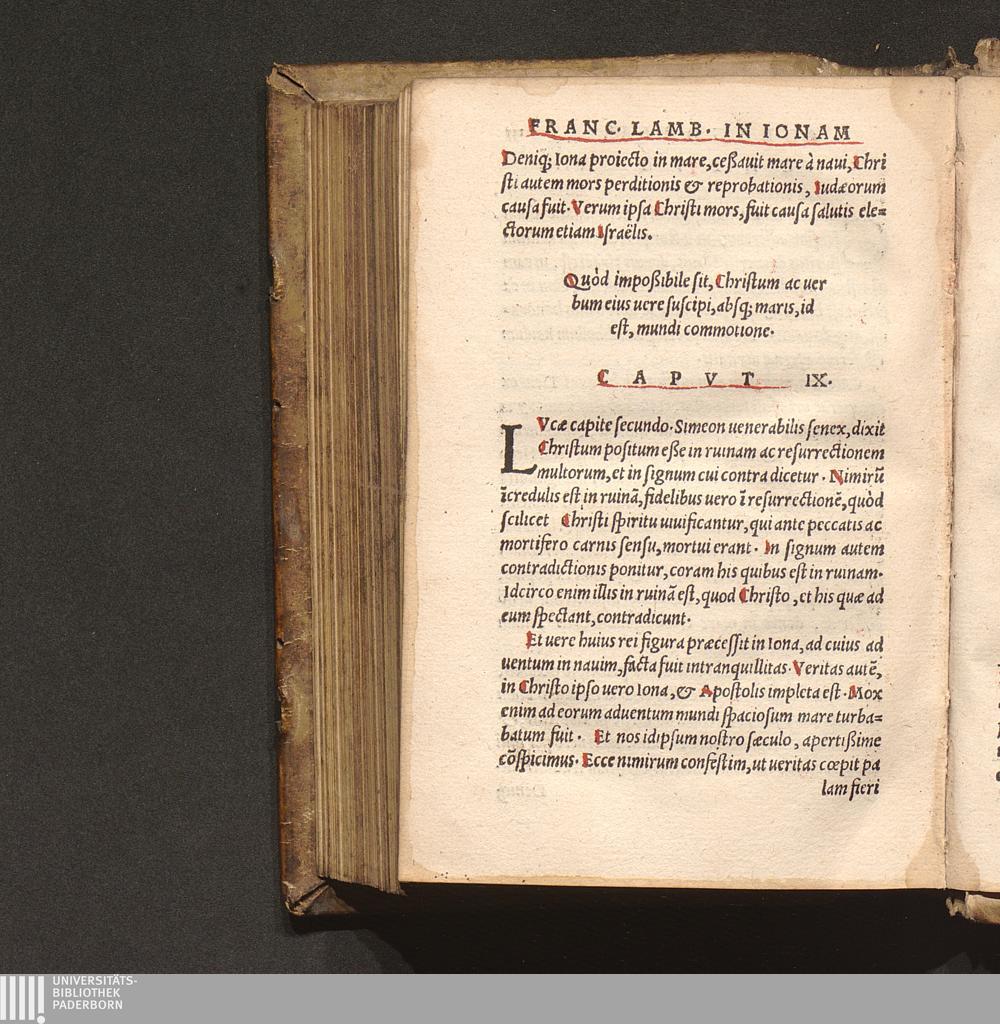 FRANC. LAMB. IN IONAM
Deniq; Iona proiecto in mare, ceßauit mare à naui, Chri
sti autem mors perditionis & reprobationis, Iudæorum
causa fuit. Verum ipsa Christi mors, fuit causa salutis ele=
ctorum etiam Israëlis.
Quòd impoßibile sit, Christum ac uer
bum eius uere suscipi, absq; maris, id
est, mundi commotione.
CAPVT IX.
LVcæ capite secundo. Simeon uenerabilis senex, dixit
Christum positum eße in ruinam ac resurrectionem
multorum, et in signum cui contra dicetur. Nimirũ
ĩcredulis est in ruinã, fidelibus uero ĩ resurrectionẽ, quòd
scilicet Christi spiritu uiuificantur, qui ante peccatis ac
mortifero carnis sensu, mortui erant. In signum autem
contradictionis ponitur, coram his quibus est in ruinam.
Idcirco enim illis in ruinã est, quod Christo, et his quæ ad
eum spectant, contradicunt.
Et uere huius rei figura præcessit in Iona, ad cuius ad
uentum in nauim, facta fuit intranquillitas. Veritas autẽ,
in Christo ipso uero Iona, & Apostolis impleta est. Mox
enim ad eorum aduentum mundi spaciosum mare turba=
batum fuit. Et nos idipsum nostro sæculo, apertißime
cõspicimus. Ecce nimirum confestim, ut ueritas cœpit pa
lam fieri
UNIVERSITÄTS-
BIBLIOTHEK
PADERBORN